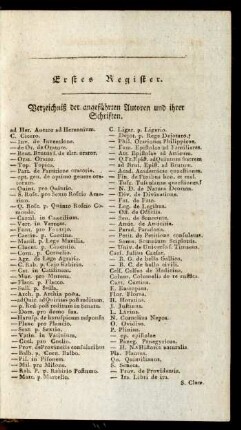 Erstes Register.
Verzeichniß der angeführten Autoren und ihrer
Schriften.
ad Her. Auctor ad Herennium.
C. Cicero.
— Inv. de Inventione.
— de Or. de Oratore.
— Brut. Brutus s. de clar. orator.
— Orat. Orator.
— Top. Topica.
— Part. de Partitione oratoria.
— opt. gen. de optimo genere oratorum.
— Quint. pro Quintio.
— S. Rosc. pro Sexto Roscio Amerino.
— Q. Rosc. p. Quinto Roscio Comoedo.
— Catil. in Catilinam.
— Verr. in Verrem.
— Font. pro Fonteio.
— Caecin. p. Caecina.
— Manil. p. Lege Manilia.
— Cluent. p. Cluentio.
— Corn. p. Cornelio.
— Agr. de Lege Agraria.
— C. Rab. p. Cajo Rabirio.
— Cat. in Catilinam.
— Mur. pro Murena.
— Flacc. p. Flacco.
— Sull. p. Sulla.
— Arch. p. Archia poeta.
— ad Quir. ad Quirites post reditum.
— p. Red. post reditum in senatu.
— Dom. pro domo sua.
— Harusp. de haruspicum responsis
— Planc. pro Plancio.
— Sext. p. Sextio.
— Vatin. in Vatinium.
— Coel. pro Coelio.
— Prov. de Provinciis consularibus
— Balb. p. Corn. Balbo.
— Pis. in Pisonem.
— Mil. pro Milone.
— Rab. P. p. Rabirio Postumo
— Marc. p. Marcello.
C. Ligar. p. Ligario.
— Dejot. p. Rege Dejotaro.
— Phil. Orationes Philippicae.
— Fam. Epistolae ad Familiares.
— Att. Epistolae ad Atticum.
— Q. Fr. Epist. ad Quintum fratrem
— ad Brut. Epist. ad Brutum.
— Acad. Academicae quaestiones.
— Fin. de Finibus bon. et mal.
— Tusc. Tusculanae quaestiones.
— N. D. de Natura Deorum.
— Div. de Divinatione.
— Fat. de Fato.
— Leg. de Legibus.
— Off. de Officiis.
— Sen. de Senectute.
— Amic. de Amicitia.
— Parad. Paradoxa.
— Petit. de Petitione consulatus.
— Somn. Somnium Scipionis.
— Univ. de Universo s. Timaeus.
Caes. Julius Caesar.
— B. G. de bello Gallico.
— B. C. de bello civili.
Cels. Celsus de Medicina.
Colum. Columella de re rustica.
Curt. Curtius.
F. Eutropius.
Just. Justinus.
H. Horatius.
J. Juvenalis.
L. Livius.
N. Cornelius Nepos.
O. Ovidius.
P. Plinius
— ep. epistolae
— Paneg. Panegyricus.
— H. N. Historia naturalis.
Pla. Plautus.
Qu. Quintilianus.
S. Seneca.
— Prov. de Providentia.
— Ira. Libri de ira.
S. Clem.